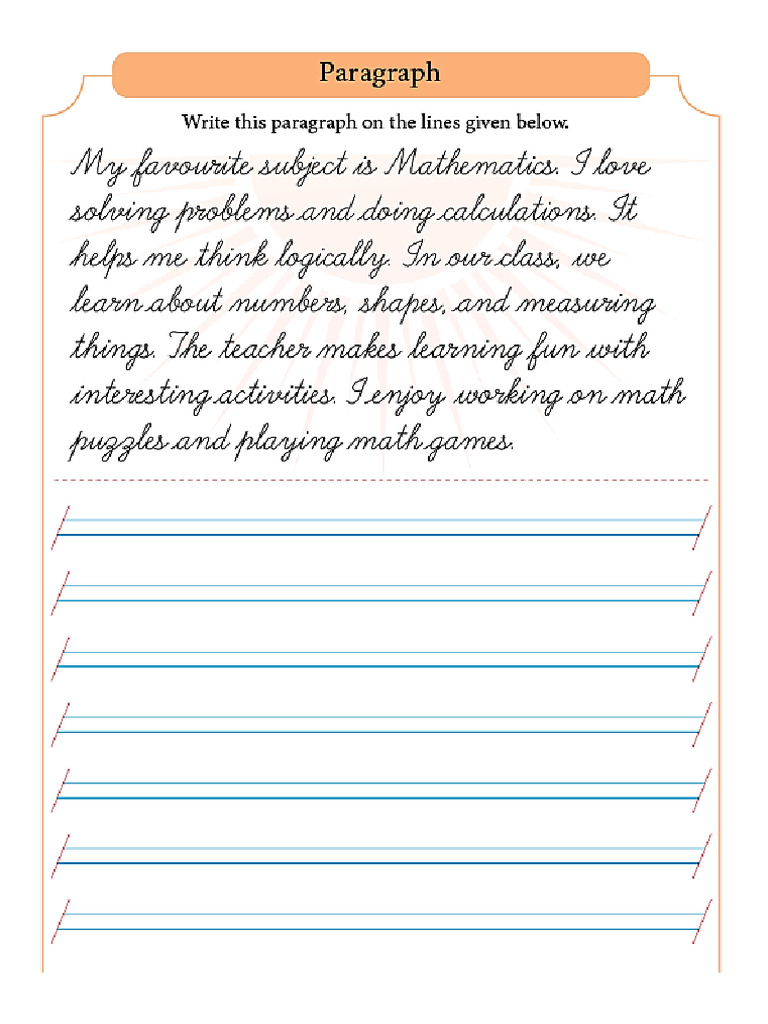 Paragraph
Write this paragraph on the lines given below.
My favourite subject is Mathematics. I love
solving problems and doing calculations. It
helps me think logically. In our class, we
learn about numbers, shapes, and measuring
things. The teacher makes learning fun with
interesting activities. I enjoy working on math
puzzles and playing math games.